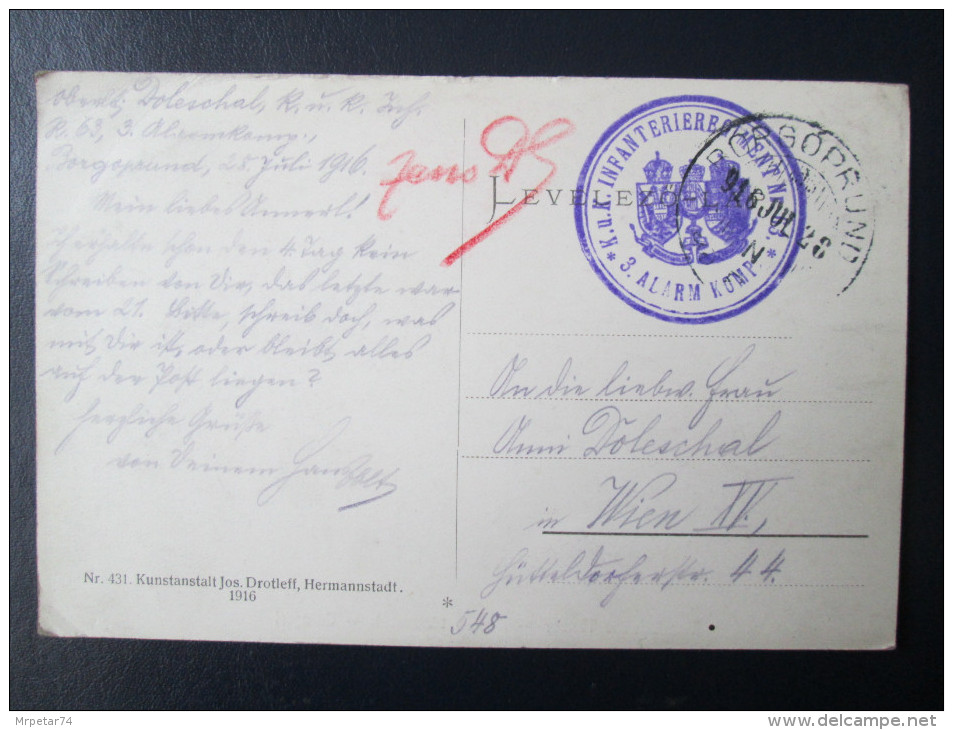 Oberlt. Doleschal, K. u. k. Inf.
R. 63, 3. Alarmkomp.,
Borgoprund, 28. Juli 1916.
Mein liebes Annerl!
erhalte schon den 4. Tag kein
Schreiben von Dir, das letzte war
vom 21. Bitte, schreib doch, was
mit Dir ist, oder bleibt alles
auf der Post liegen?
Herzliche Grüße
von Deinem
LEVELEZŐ
* K.u.K. INFANTERIEREGIMENT NR. 63 *
3. ALARM KOMP.
BORGÓPRUND
916 JUL 28
An die liebw. Frau
Anni Doleschal
in Wien XV.,
Hütteldorferstr. 44.
Nr. 431. Kunstanstalt Jos. Drotleff, Hermannstadt.
1916
*
548
Mrpetar74
delcampe.net